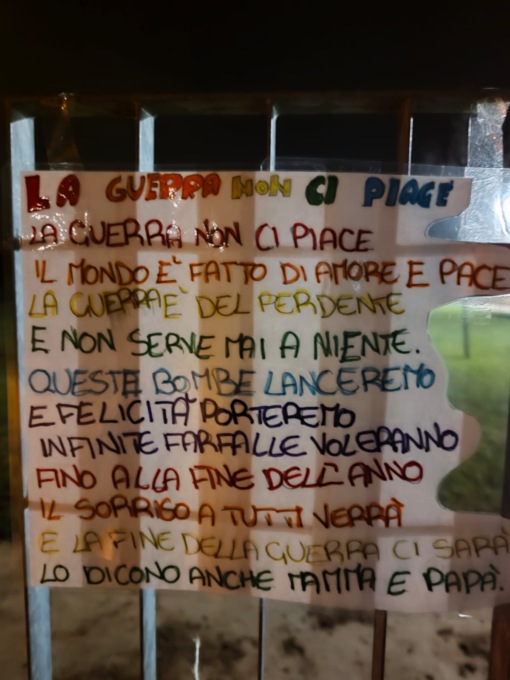 LA GUERRA NON CI PIACE
LA GUERRA NON CI PIACE
IL MONDO E' FATTO DI AMORE E PACE
LA GUERRA E' DEL PERDENTE
E NON SERVE MAI A NIENTE.
QUESTE BOMBE LANCEREMO
E FELICITÀ PORTEREMO
INFINITE FARFALLE VOLERANNO
FINO ALLA FINE DELL'ANNO
IL SORRISO A TUTTI VERRÀ
E LA FINE DELLA GUERRA CI SARÀ
LO DICONO ANCHE MAMMA E PAPÀ.